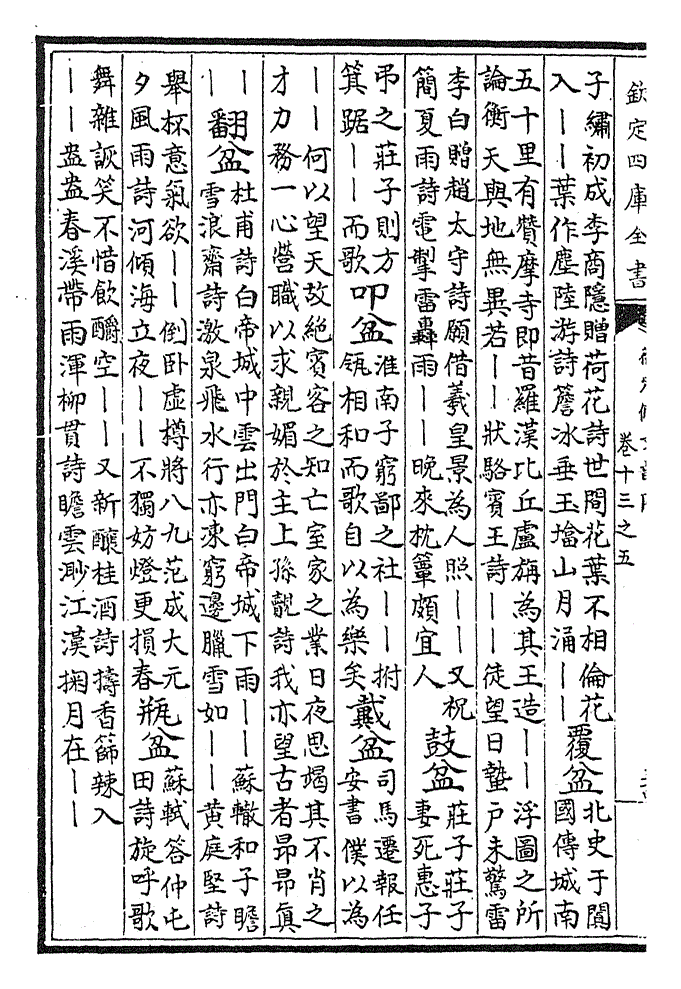 欽定四庫全書
卷十三之五
子繡初成李商隱贈荷花詩世間花葉不相倫花
入——葉作塵陸游詩簷冰垂玉墖山月涌——
覆盆
北史于闐
國傳城南
五十里有贊摩寺即昔羅漢比丘盧旃為其王造——浮圖之所
論衡天與地無異若——狀駱賓王詩——徒望日蟄戶未驚雷
李白贈趙太守詩願借羲皇景為人照——又祝
簡夏雨詩電掣雷轟雨——晚來枕簟頗宜人
鼓盆
莊子莊子
妻死惠子
弔之莊子則方
箕踞——而歌
叩盆
淮南子窮鄙之社——拊
瓴相和而歌自以為樂矣
戴盆
司馬遷報任
安書僕以為
——何以望天故絕賓客之知亡室家之業日夜思竭其不肖之
才力務一心營職以求親媚於主上孫覿詩我亦望古者昂昂真
——
翻盆
杜甫詩白帝城中雲出門白帝城下雨——蘇轍和子瞻
雪浪齋詩激泉飛水行亦凍窮邊臘雪如——黃庭堅詩
舉杯意氣欲——倒卧虛樽將八九范成大元
夕風雨詩河傾海立夜——不獨妨燈更損春
瓶盆
蘇軾答仲屯
田詩旋呼歌
舞雜詼笑不惜飲釂空——又新釀桂酒詩擣香篩辣入
——盎盎春溪帶雨渾柳貫詩瞻雲渺江漢掬月在——